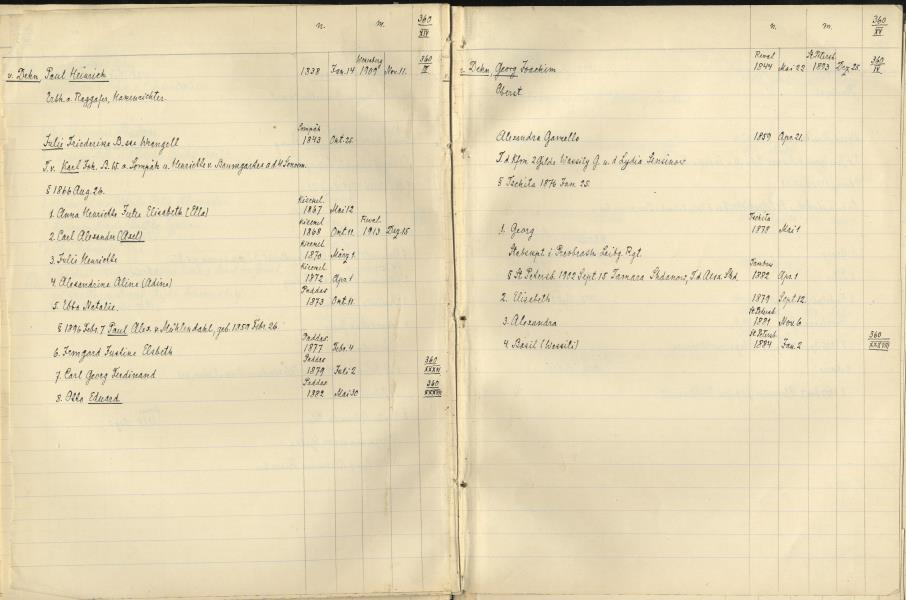 n. m. 360
XIV
Wesenberg 360
v. Dehn, Paul Heinrich 1838 Jan. 14 1909 Nov. 11. IX
Erbh. a. Raggafer, Hakenrichter
Sompäh
Julie Friederike B.sse Wrangell 1843 Okt. 25.
T. v. Karl Joh. B. W. a. Sompäh u. Henriette v. Baumgarten a. d. H.
§ 1866 Aug. 26.
Kirimel
1. Anna Henriette Julie Elisabeth (Ella) 1867 Mai 12
Kirimel Reval
2. Carl Alexander (Axel) 1868 Okt. 11. 1913 Dez. 15
Kirimel
3. Julie Henriette 1870 März 1.
Kirimel
4. Alexandrine Aline (Adine) 1872 Apr. 1
Paddas
5. Ebba Natalie. 1873 Okt. 11.
§ 1896 Febr. 7 Paul Alex. v. Mühlendahl, geb. 1859 Febr. 26.
Paddas
6. Irmgard Justine Elsbeth 1877 Febr. 4
Paddas 360
7. Carl Georg Ferdinand 1879 Juli 2 XXXVI
Paddas 360
8. Otto Eduard 1882 Mai 30 XXXVII
n. m. 360
XV
Reval St. Petersb. 360
v. Dehn, Georg Joachim 1844 Mai 22. 1893 Dez. 25. IX
Oberst
Alexandra Gamello 1859 Apr. 21.
T. d. Kfm. 2 Gilde Wassily G. u. d. Lydia
§ Tschita 1876 Jan. 25.
Tschita
1. Georg 1878 Mai 1
Stabskpt i. Preobrash. Leibg. Rgt.
Tambow
§ St. Petersb. 1902 Sept. 15 Tamara Shdanow, T. d. Alex. Shd. 1882 Apr. 1
2. Elisabeth 1879 Sept. 12.
St. Petersb.
3. Alexandra 1881 Nov. 6
St. Petersb. 360
4. Basil (Wassili) 1884 Jan. 2 XXXVIII